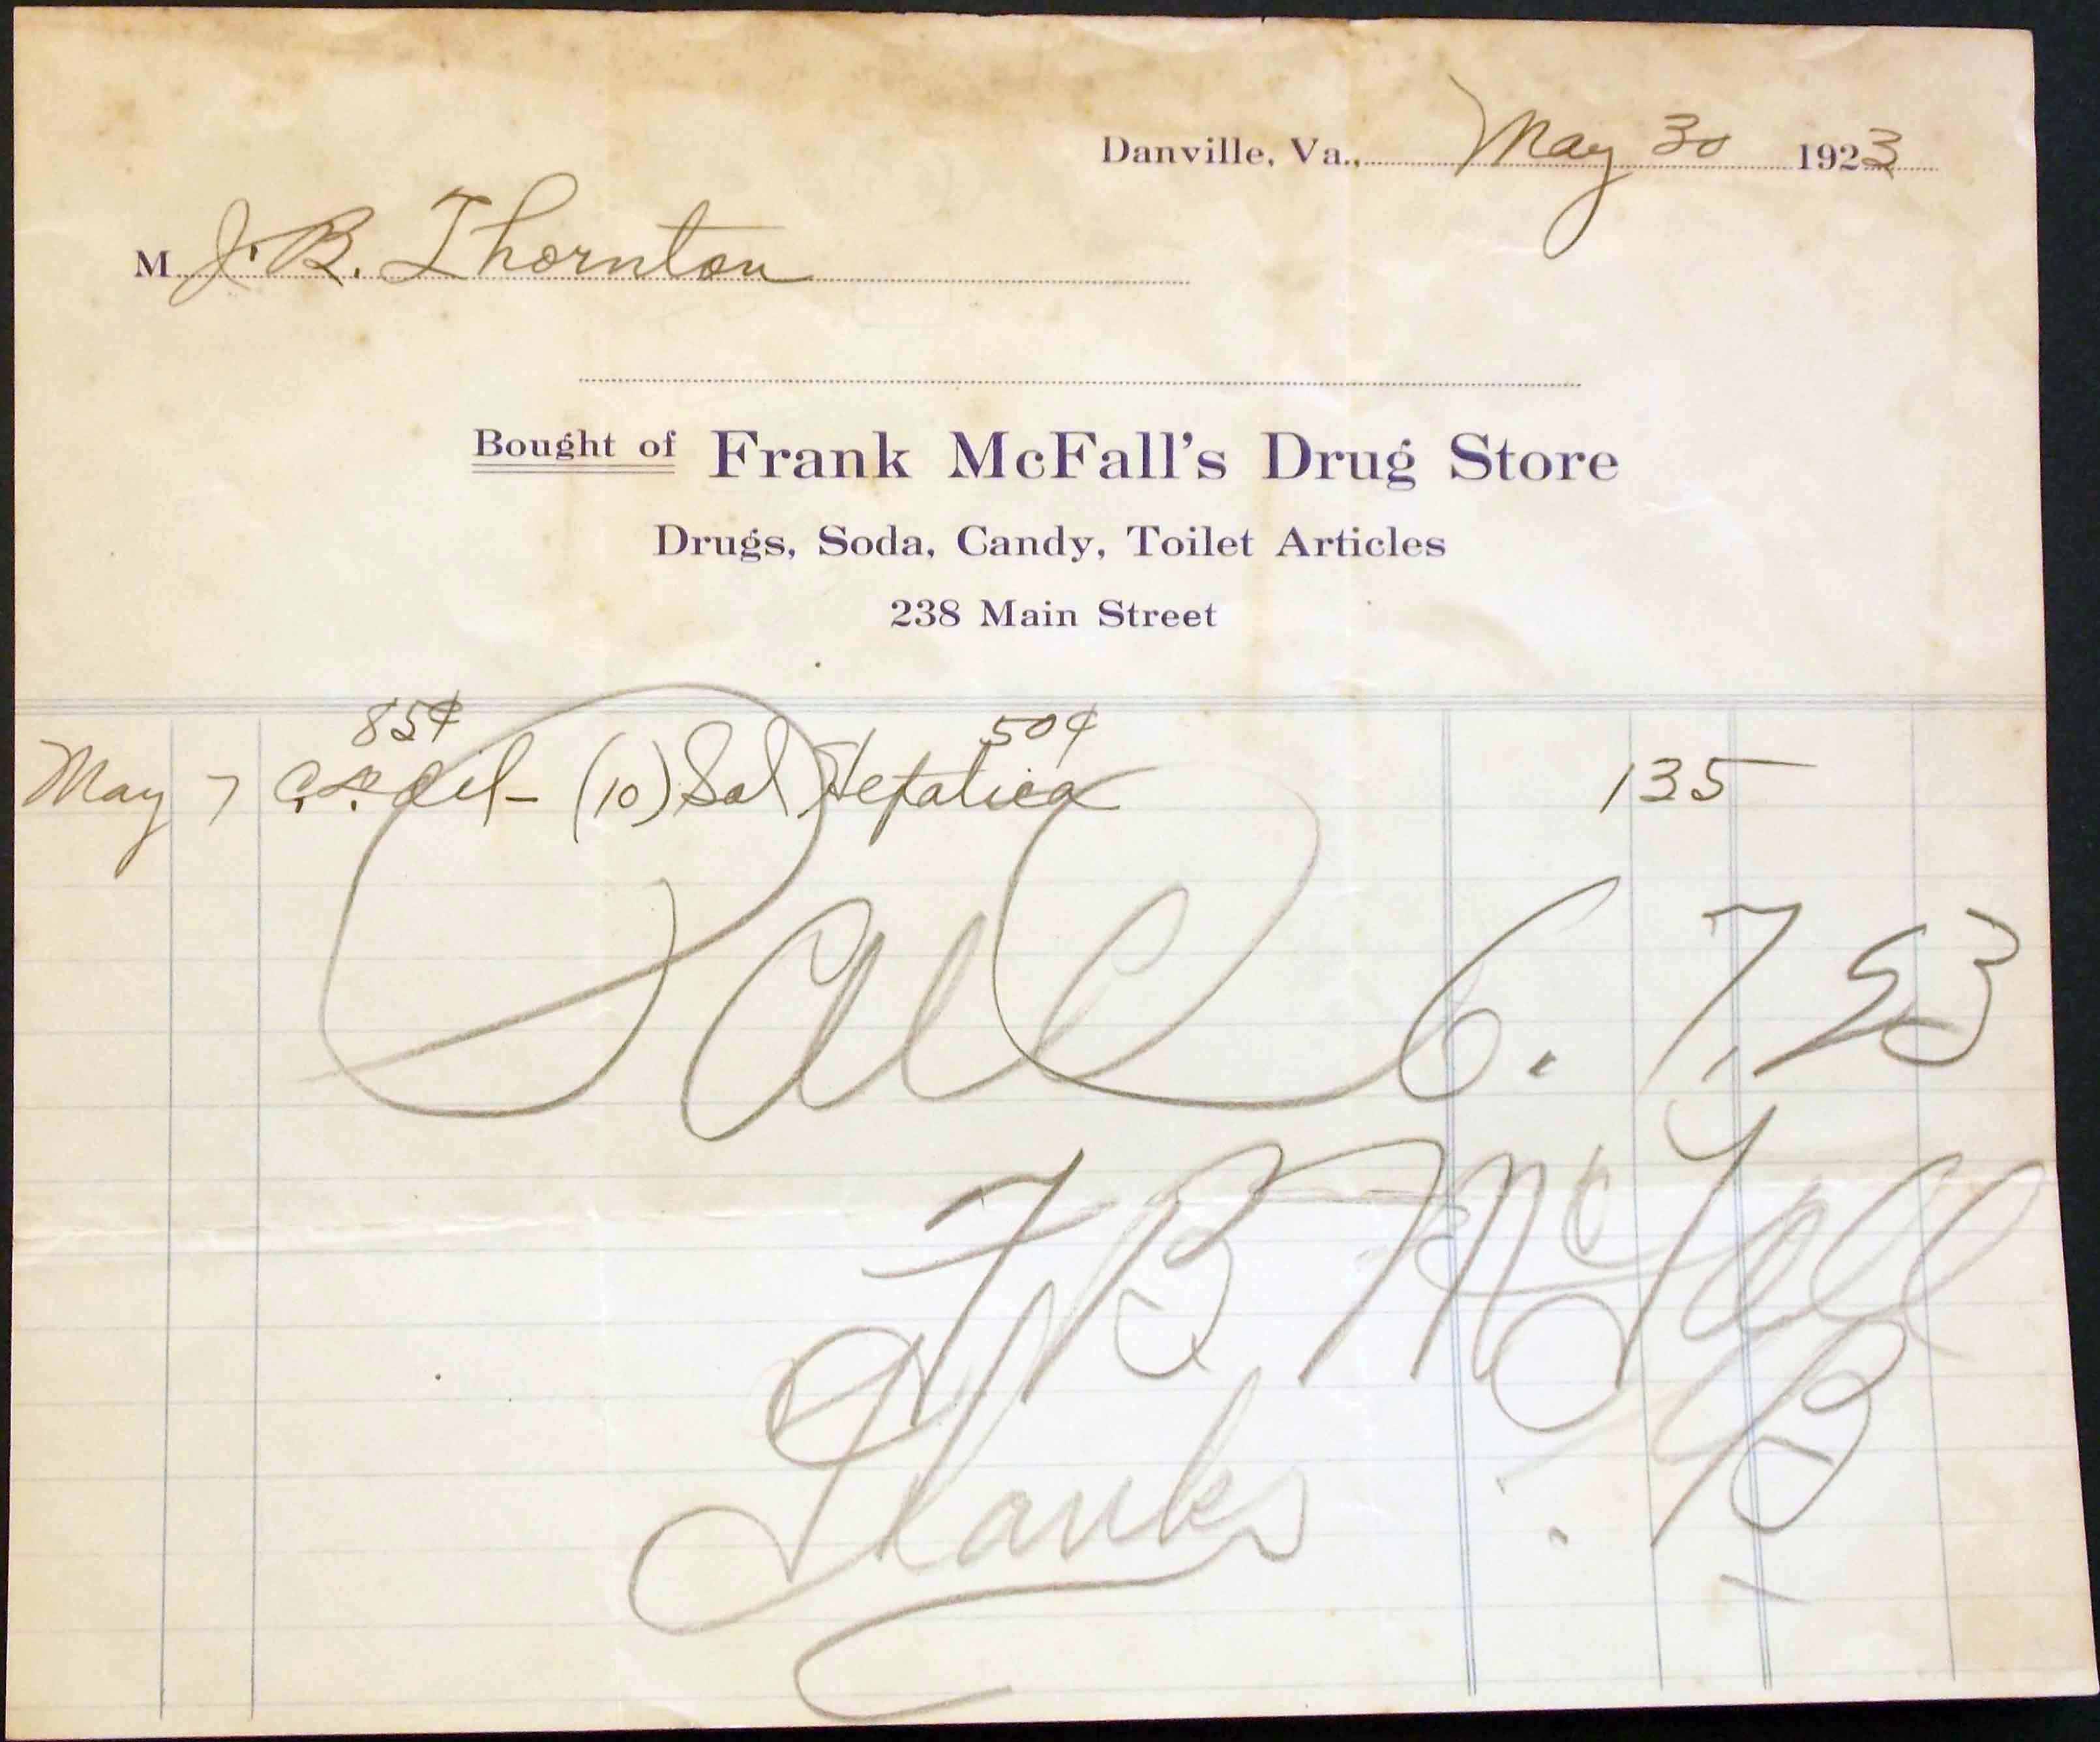 Danville, Va., May 30 1923
M J. B. Thornton
Bought of Frank McFall's Drug Store
Drugs, Soda, Candy, Toilet Articles
238 Main Street
85¢ 50¢
May 7 Oil - (10) Sal Hepatica 135
Paid 6. 7, 23
F B McFall
B
Thanks